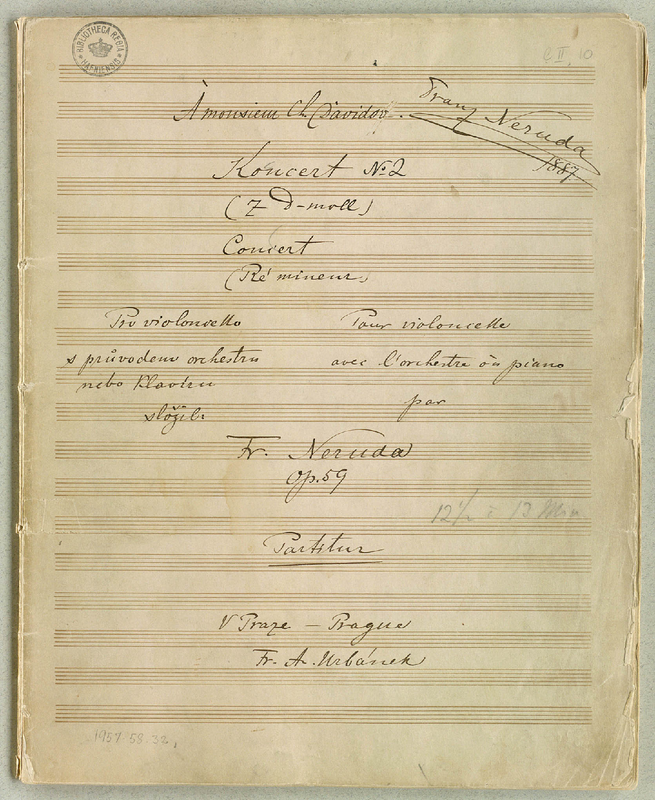 BIBLIOTHECA REGIA HAFNIENSIS
C II, 10
À monsieur Ch. Davidov.
Franz Neruda
1887
Koncert No 2
(Z D-moll)
Concert
(Ré mineur)
Pro violoncello
s průvodem orchestru
nebo klavíru
složil:
Pour violoncelle
avec l'orchestre òu piano
par
Fr. Neruda
Op. 59
12½ à 13 Min
Partitur
V Praze — Prague
Fr. A. Urbánek
1957 58. 32,